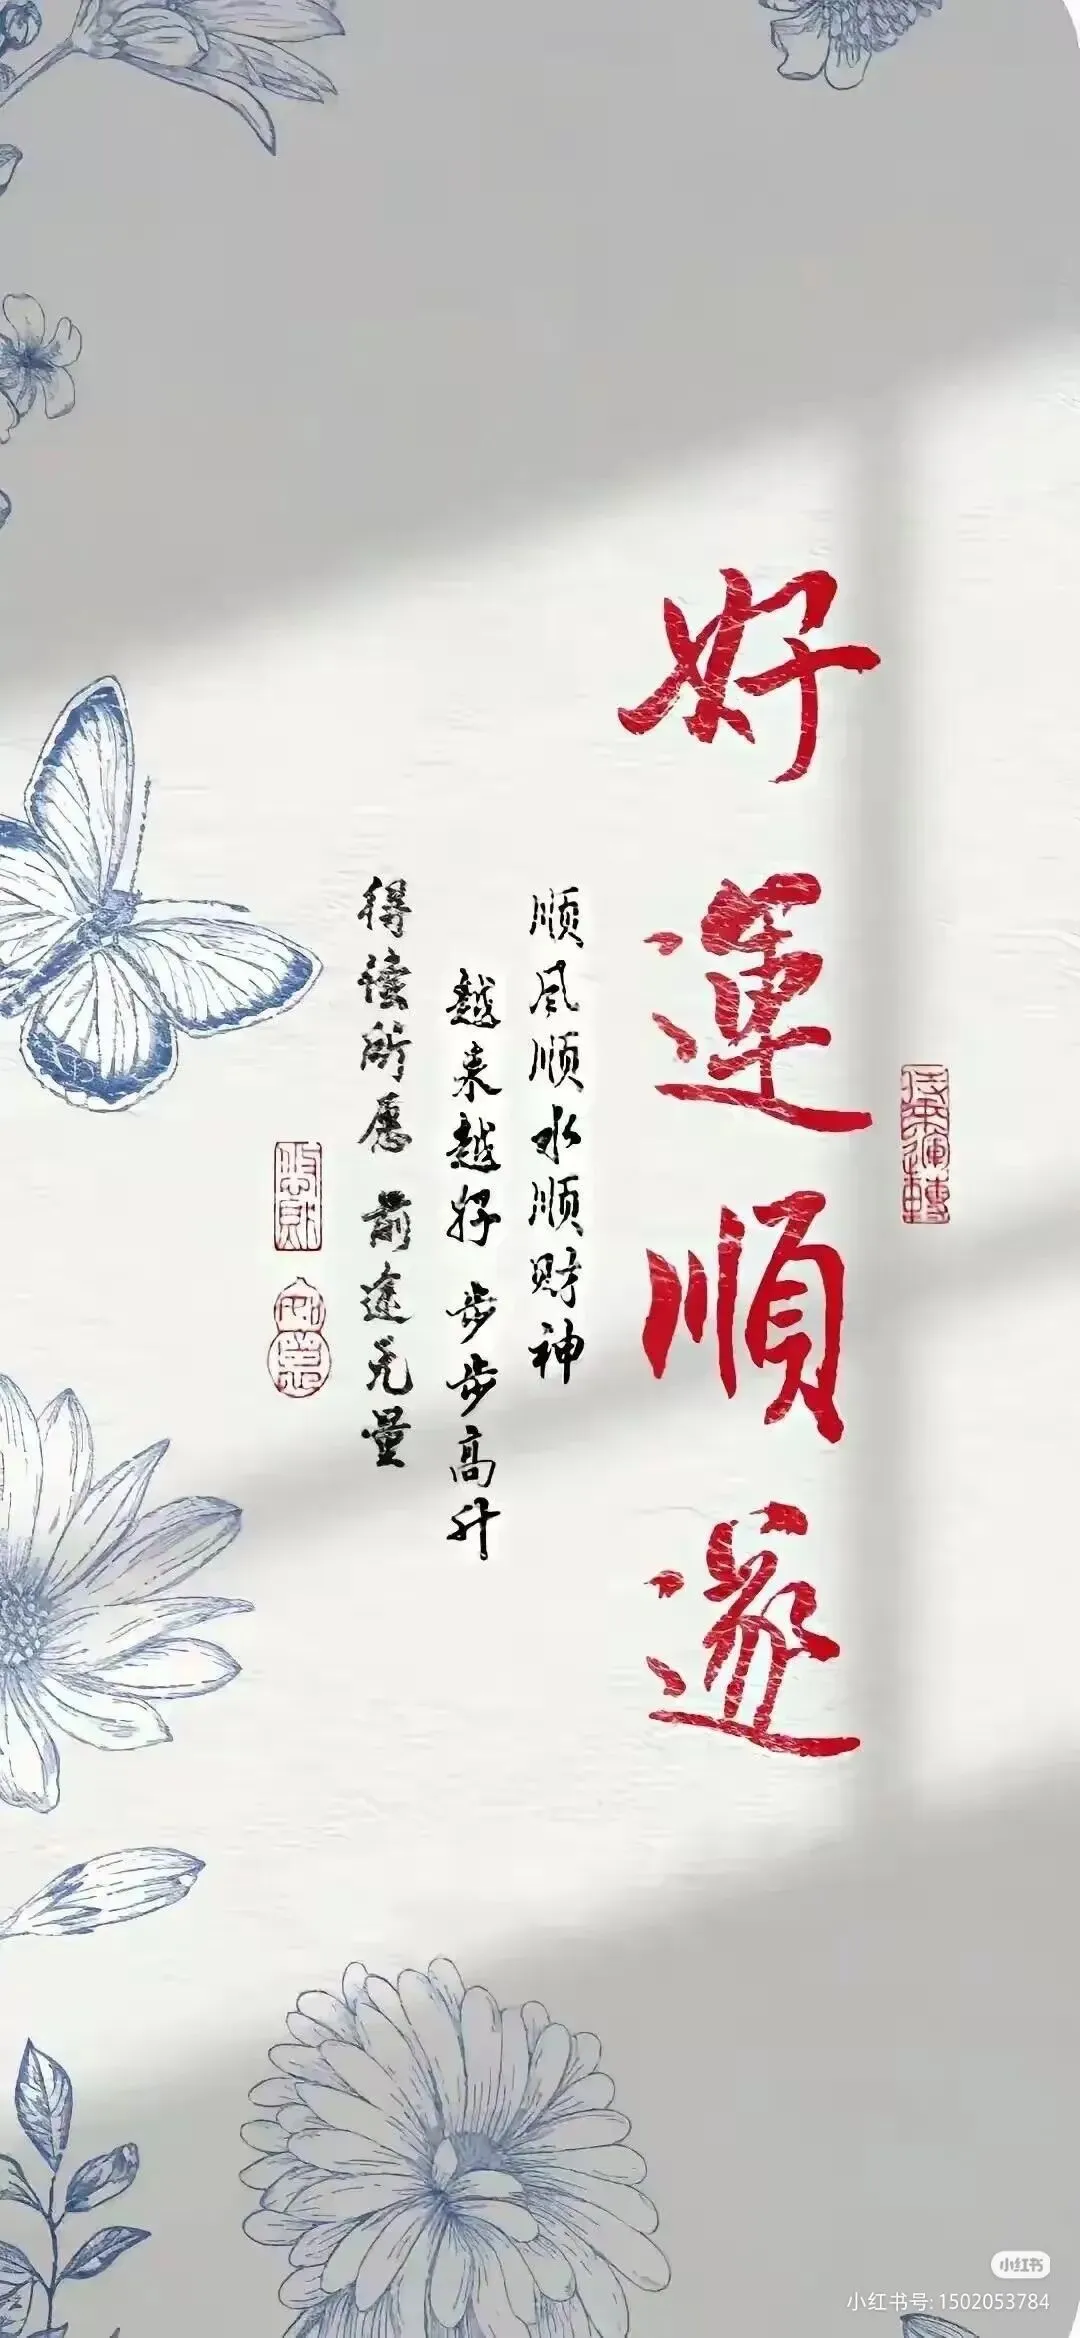 好運順遂
顺风顺水顺财神
越来越好 步步高升
得偿所愿 前途无量
如意
小红书
小红书号: 1502053784